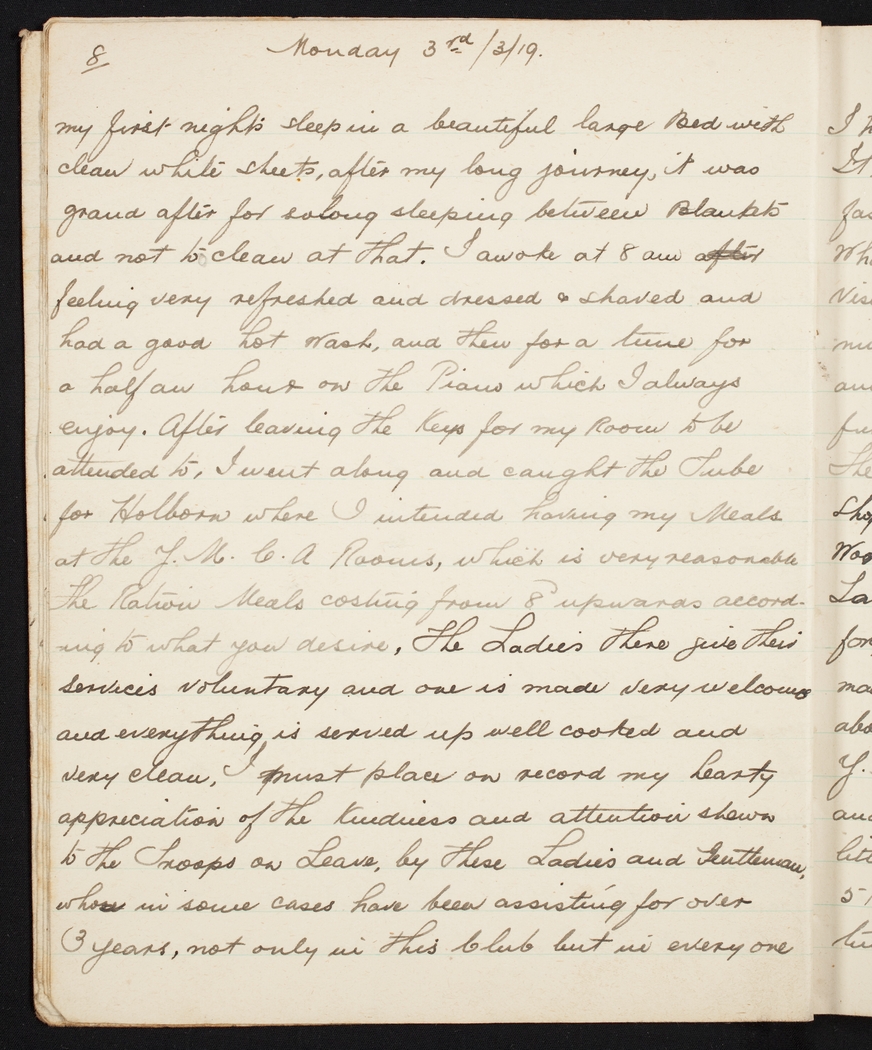 8
Monday 3rd /3/19.
my first night's sleep in a beautiful large Bed with
clean white sheets, after my long journey, it was
grand after for so long sleeping between Blankets
and not to clean at that. I awoke at 8 am after
feeling very refreshed and dressed & shaved and
had a good hot wash, and then for a tune for
a half an hour on the Piano which I always
enjoy. After leaving the Keys for my Room to be
attended to, I went along and caught the Tube
for Holborn where I intended having my Meals
at the Y. M. C. A Rooms, which is very reasonable
the Ration Meals costing from 8d upwards accord-
ing to what you desire, the Ladies there give their
services voluntary and one is made very welcome
and everything is served up well cooked and
very clean, I must place on record my hearty
appreciation of the Kindness and attention shewn
to the Troops on Leave, by these Ladies and Gentleman,
whom in some cases have been assisting for over
3 years, not only in this Club but in every one
I
It
fas
Wh
Vis
mu
and
fu
The
Shop
Woo
La
for
ma
abo
Y.
and
litt
51
tu